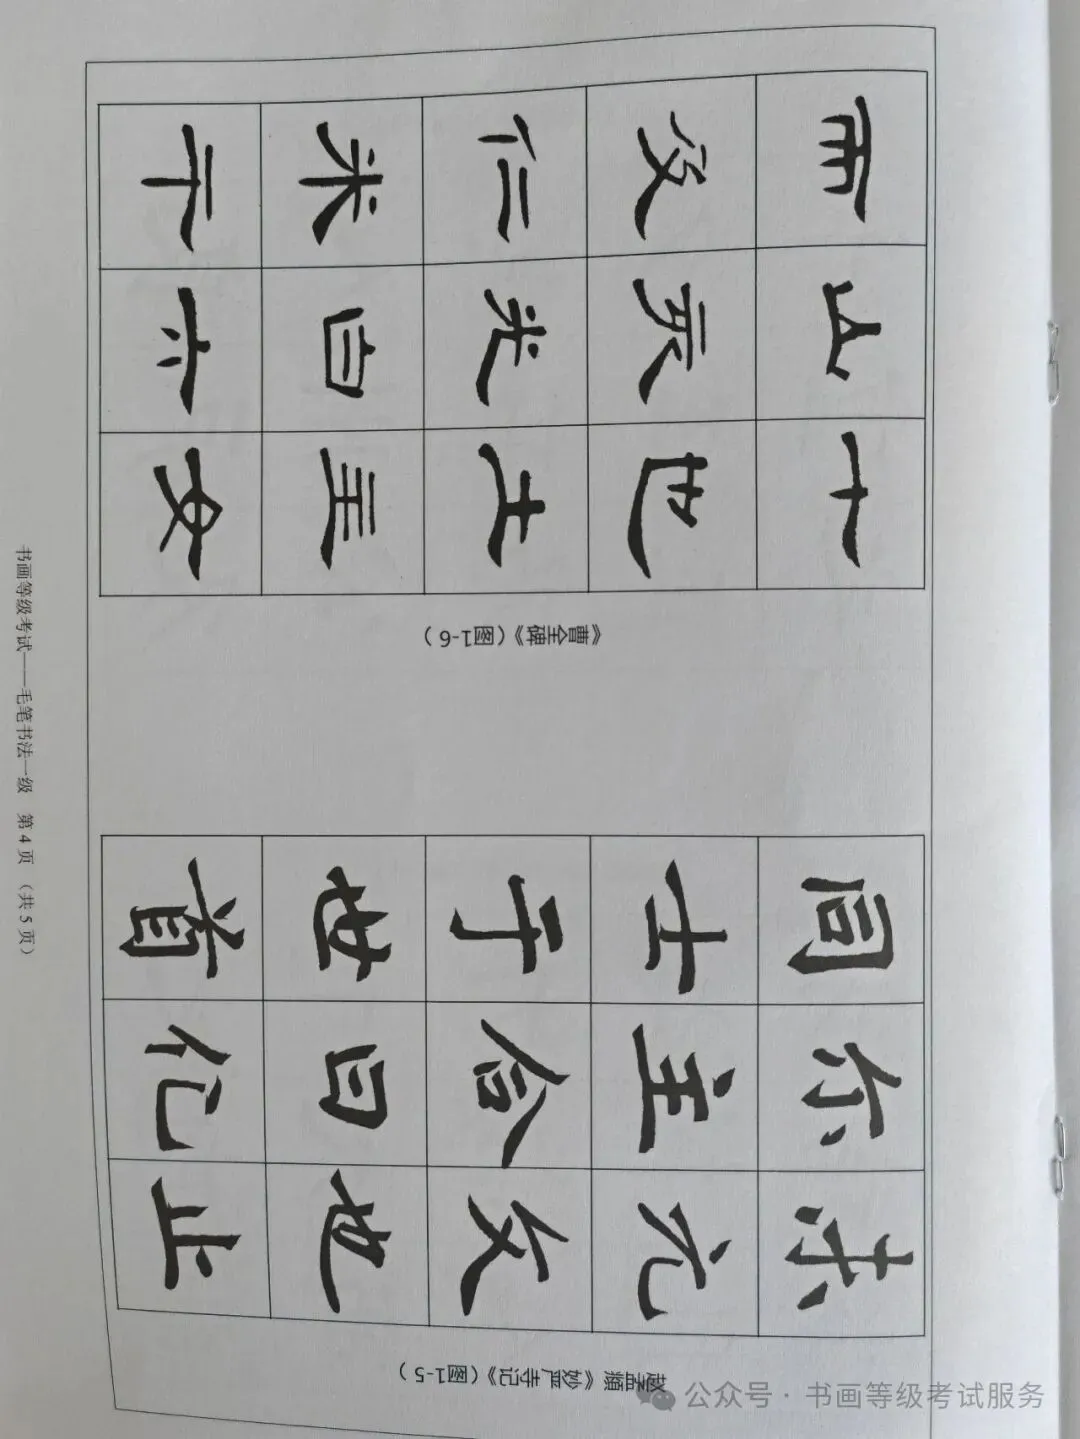 未元文也止
尔主合日化
间士于世首
赵孟頫《妙严寺记》（图1-5）
十也土王女
山光白六
而及仁米干
《曹全碑》（图1-6）
书画等级考试——毛笔书法一级 第 4 页 （共 5 页）
公众号 · 书画等级考试服务